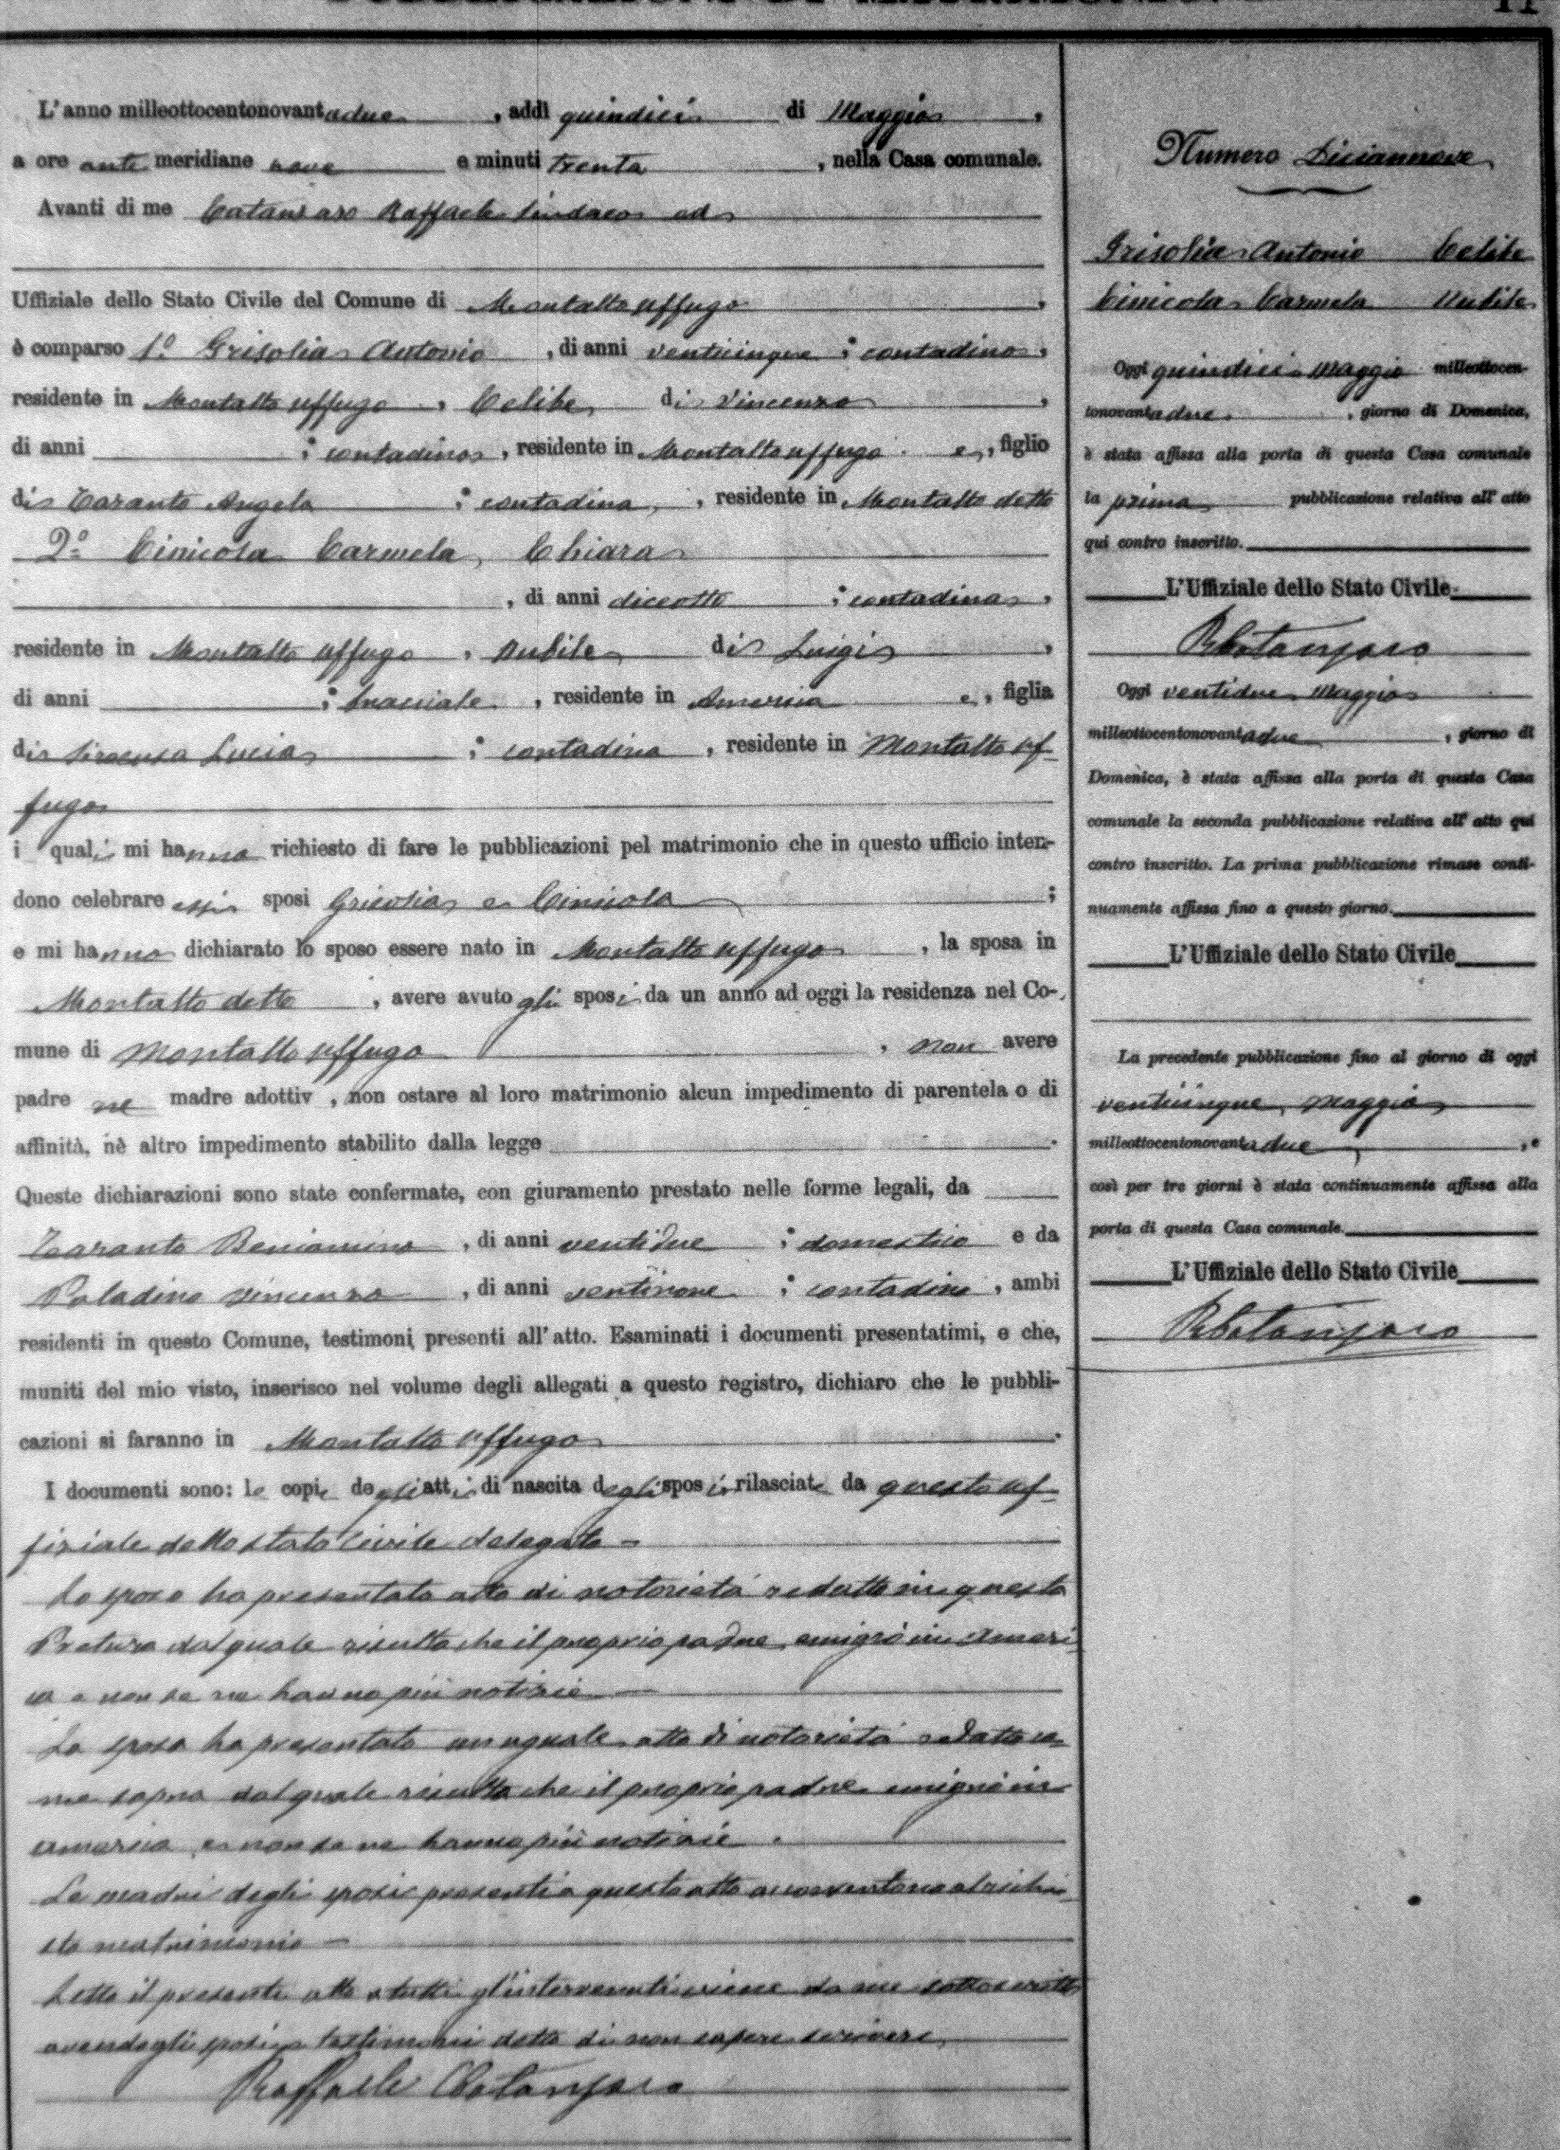 11
L'anno milleottocentonovantadue, addì quindici di Maggio,
a ore anti meridiane nove e minuti trenta, nella Casa comunale.
Avanti di me Catanzaro Raffaele Sindaco ed
Uffiziale dello Stato Civile del Comune di Montalto Uffugo,
è comparso 1.º Grisolia Antonio, di anni venticinque; contadino,
residente in Montalto Uffugo, Celibe, di Vincenzo,
di anni ; contadino, residente in Montalto Uffugo e, figlio
di Taranto Angela; contadina, residente in Montalto detto
2.º Cinicola Carmela, Chiara
, di anni diciotto; contadina,
residente in Montalto Uffugo, nubile di Luigi,
di anni ; bracciale, residente in America e, figlia
di Lucia; contadina, residente in Montalto Uf-
fugo
i quali mi hanno richiesto di fare le pubblicazioni pel matrimonio che in questo ufficio inten-
dono celebrare essi sposi Grisolia e Cinicola;
e mi hanno dichiarato lo sposo essere nato in Montalto Uffugo, la sposa in
Montalto detto, avere avuto gli sposi da un anno ad oggi la residenza nel Co-
mune di Montalto Uffugo, non avere
padre ne madre adottiv , non ostare al loro matrimonio alcun impedimento di parentela o di
affinità, nè altro impedimento stabilito dalla legge.
Queste dichiarazioni sono state confermate, con giuramento prestato nelle forme legali, da
Taranto Beniamino, di anni ventidue; domestico e da
Paladino Vincenzo, di anni ventinove; contadino, ambi
residenti in questo Comune, testimoni presenti all'atto. Esaminati i documenti presentatimi, e che,
muniti del mio visto, inserisco nel volume degli allegati a questo registro, dichiaro che le pubbli-
cazioni si faranno in Montalto Uffugo.
I documenti sono: le copie degli atti di nascita degli sposi rilasciate da questo uf-
fiziale dello stato Civile delegato -
Lo sposo ha presentato atto di notorietà redatto in questa
Pretura dal quale risulta che il proprio padre emigrò in Ameri
ca e non se ne hanno più notizie -
La sposa ha presentato un uguale atto di notorietà redatto co-
me sopra dal quale risulta che il proprio padre emigrò in
america e non se ne hanno più notizie.
Le madri degli sposi presenti a questo atto acconsentono al richie-
sto matrimonio -
Letto il presente atto a tutti gl'intervenuti viene da me sottoscritto
avendo gli sposi e testimoni detto di non sapere scrivere
Raffaele Catanzaro
Numero Diciannove
Grisolia Antonio Celibe
Cinicola Carmela Nubile
Oggi quindici Maggio milleottocen-
tonovantadue, giorno di Domenica,
è stata affissa alla porta di questa Casa comunale
la prima pubblicazione relativa all'atto
qui contro inscritto.
L'Uffiziale dello Stato Civile
RCatanzaro
Oggi ventidue Maggio
milleottocentonovantadue, giorno di
Domenica, è stata affissa alla porta di questa Casa
comunale la seconda pubblicazione relativa all'atto qui
contro inscritto. La prima pubblicazione rimase conti-
nuamente affissa fino a questo giorno.
L'Uffiziale dello Stato Civile
La precedente pubblicazione fino al giorno di oggi
venticinque Maggio
milleottocentonovantadue, e
così per tre giorni è stata continuamente affissa alla
porta di questa Casa comunale.
L'Uffiziale dello Stato Civile
RCatanzaro